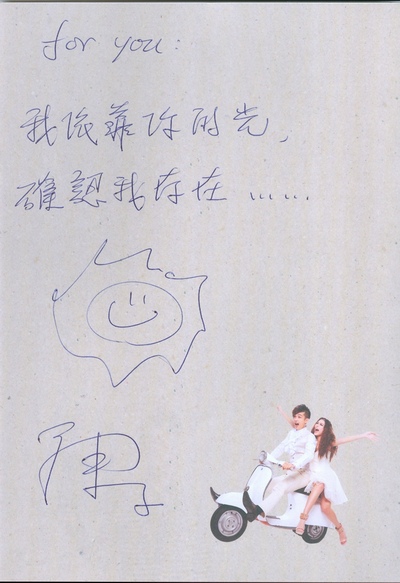 for you:
我依靠你的光,
確認我存在......